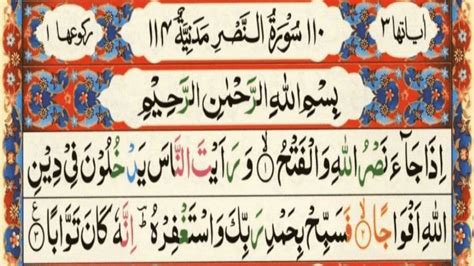 اٰیاتها ٣ ١١٠ سُوْرَةُ النَّصْرِ مَدَنِیَّةٌ ١١٤ رکوعها ١
بِسْمِ اللهِ الرَّحْمٰنِ الرَّحِیْمِ
اِذَا جَآءَ نَصْرُ اللهِ وَالْفَتْحُ ۙ﴿١﴾ وَرَاَیْتَ النَّاسَ یَدْخُلُوْنَ فِیْ دِیْنِ
اللهِ اَفْوَاجًا ۙ﴿٢﴾ فَسَبِّحْ بِحَمْدِ رَبِّكَ وَاسْتَغْفِرْهُ ؕ اِنَّهٗ كَانَ تَوَّابًا ﴿٣﴾ ع